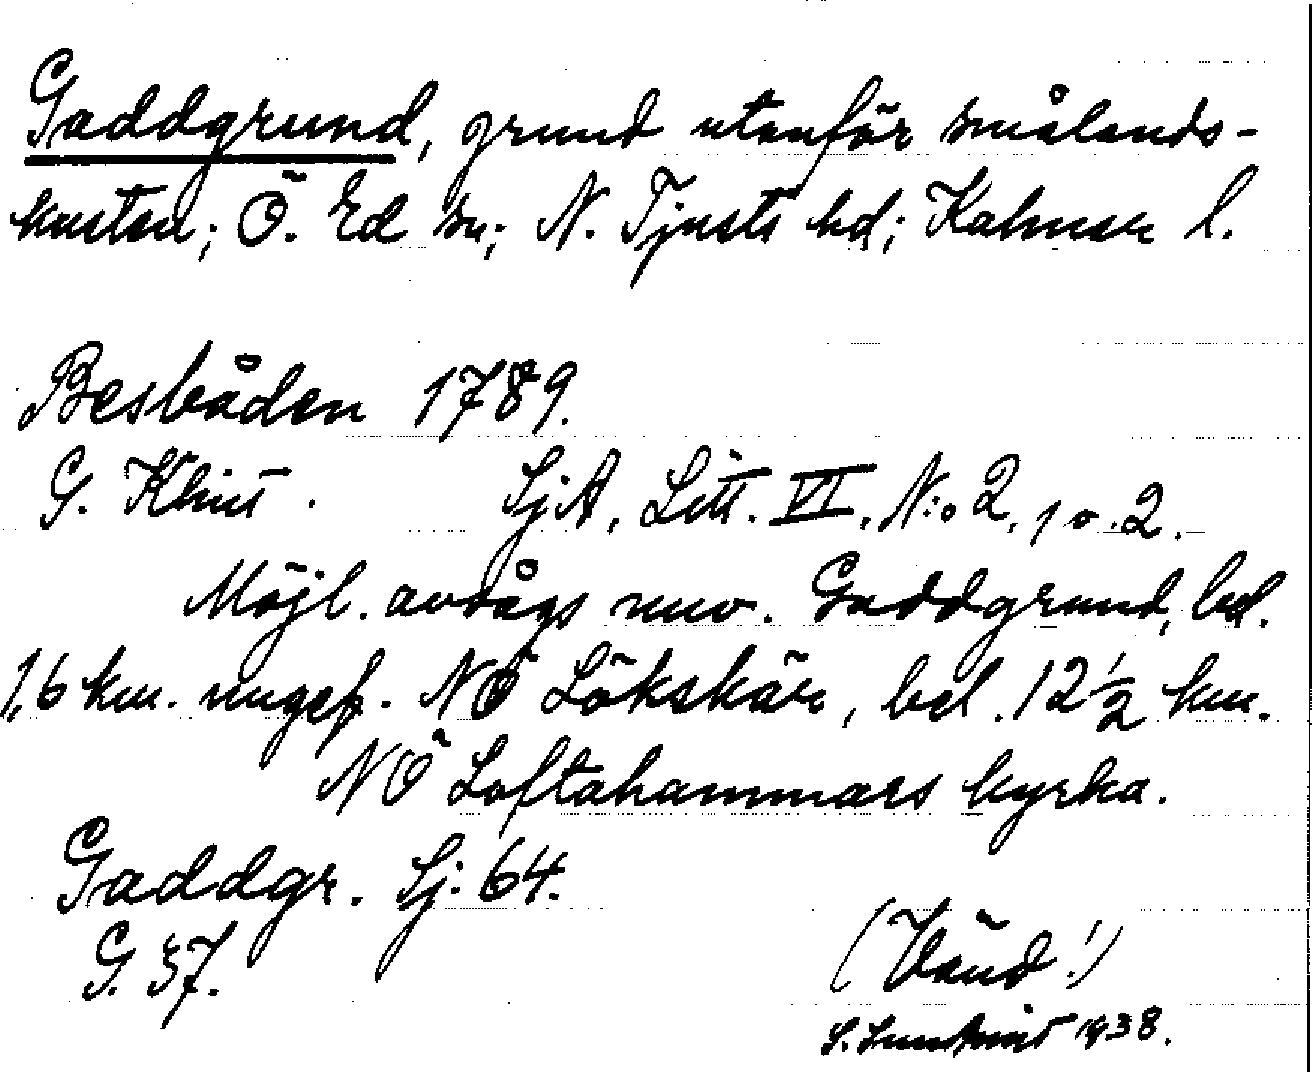 Gaddgrund, grund utanför smålands-
kusten; Ö. Ed sn; N. Tjusts hd; Kalmar l.
Besbåden 1789.
G. Klint. SjA, Litt. VI, N:o 2, 1 o. 2.
Möjl. avsågs nuv. Gaddgrund, bel.
1,6 km. ungef. NÖ Lökskär, bel. 12 1/2 km.
NÖ Loftahammars kyrka.
Gaddgr. Sj. 64.
G. 37.
(Vänd!)
S. Lundkvist 1938.